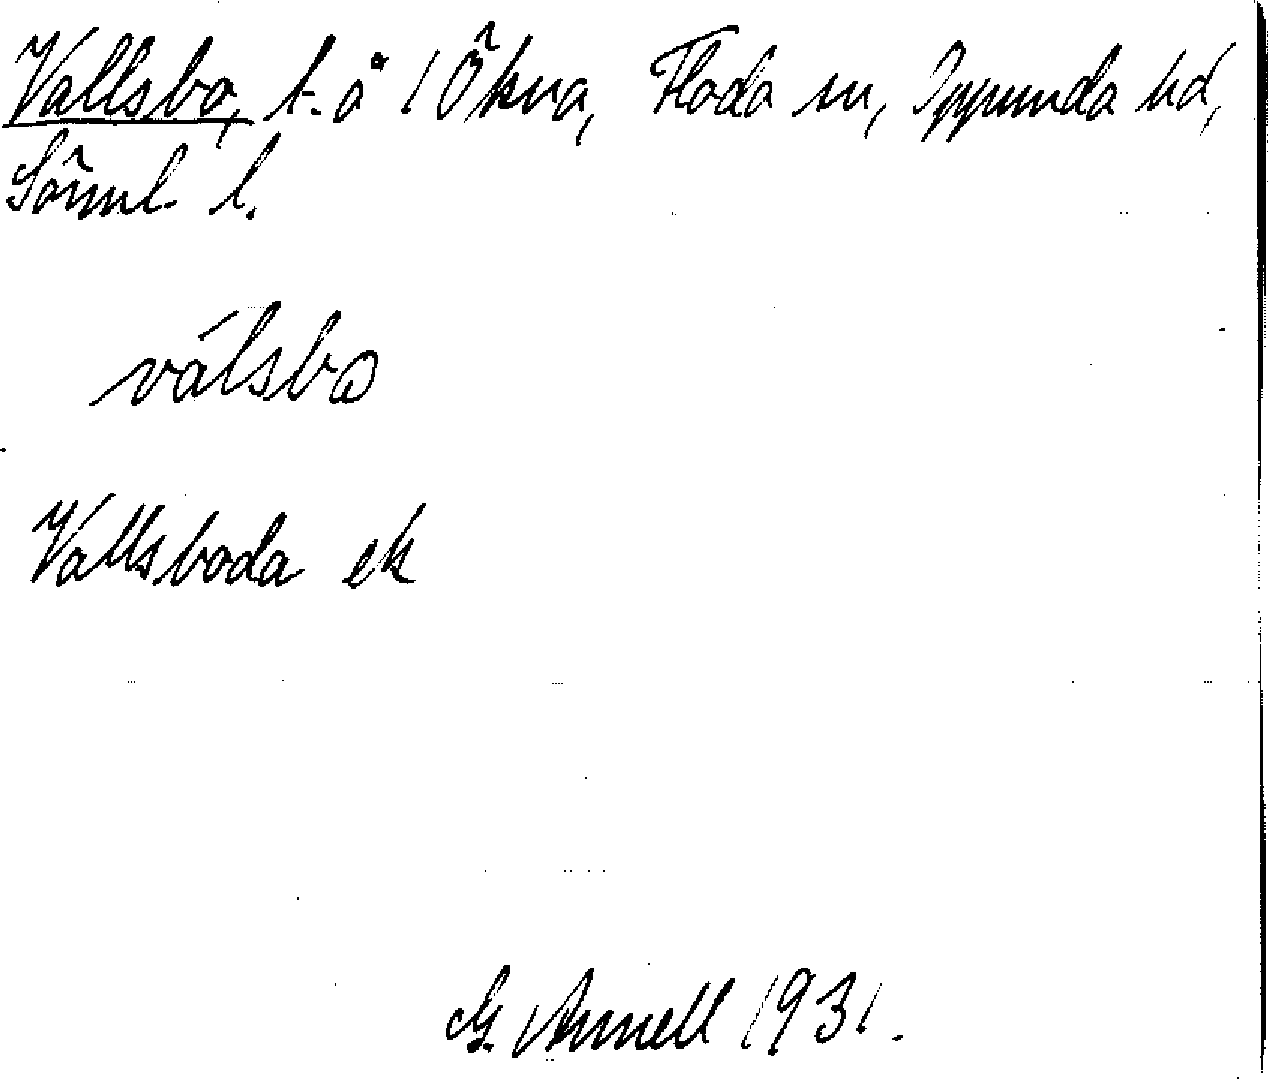 Vallsbo, t. å 1 Ökna, Floda sn, Oppunda hd,
Sörml l.
válsbo
Vallsboda ek
G. Annell 1931.